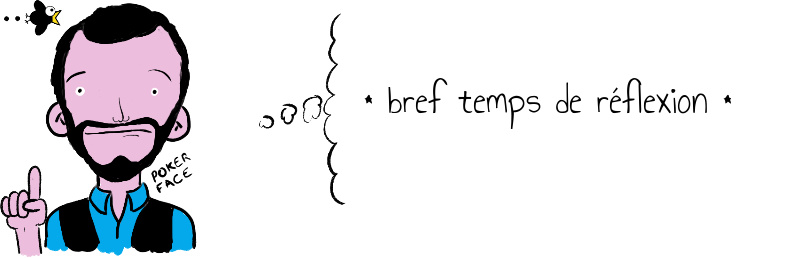 ...
* bref temps de réflexion *
POKER
FACE